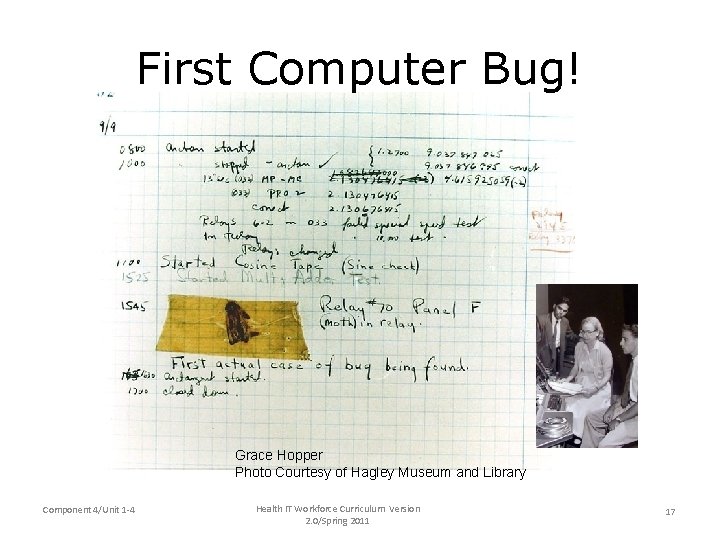 First Computer Bug!
9/9
0800 Antan started
1000 " stopped - antan ✓ { 1.2700 9.037 847 025
9.037 846 995 conect
13"uc (032) MP-MC 2.130476415 (-3) 4.615925059(-2)
(033) PRO 2 2.130476415
conect 2.130676415
Relays 6-2 in 033 failed special speed test
In Relay " 10,000 test.
Relays changed
1100 Started Cosine Tape (Sine check)
1525 Started Mult+Adder Test.
1545 Relay #70 Panel F
(moth) in relay.
First actual case of bug being found.
1630 antangent started.
1700 closed down.
Grace Hopper
Photo Courtesy of Hagley Museum and Library
Component 4/Unit 1-4
Health IT Workforce Curriculum Version
2.0/Spring 2011
17